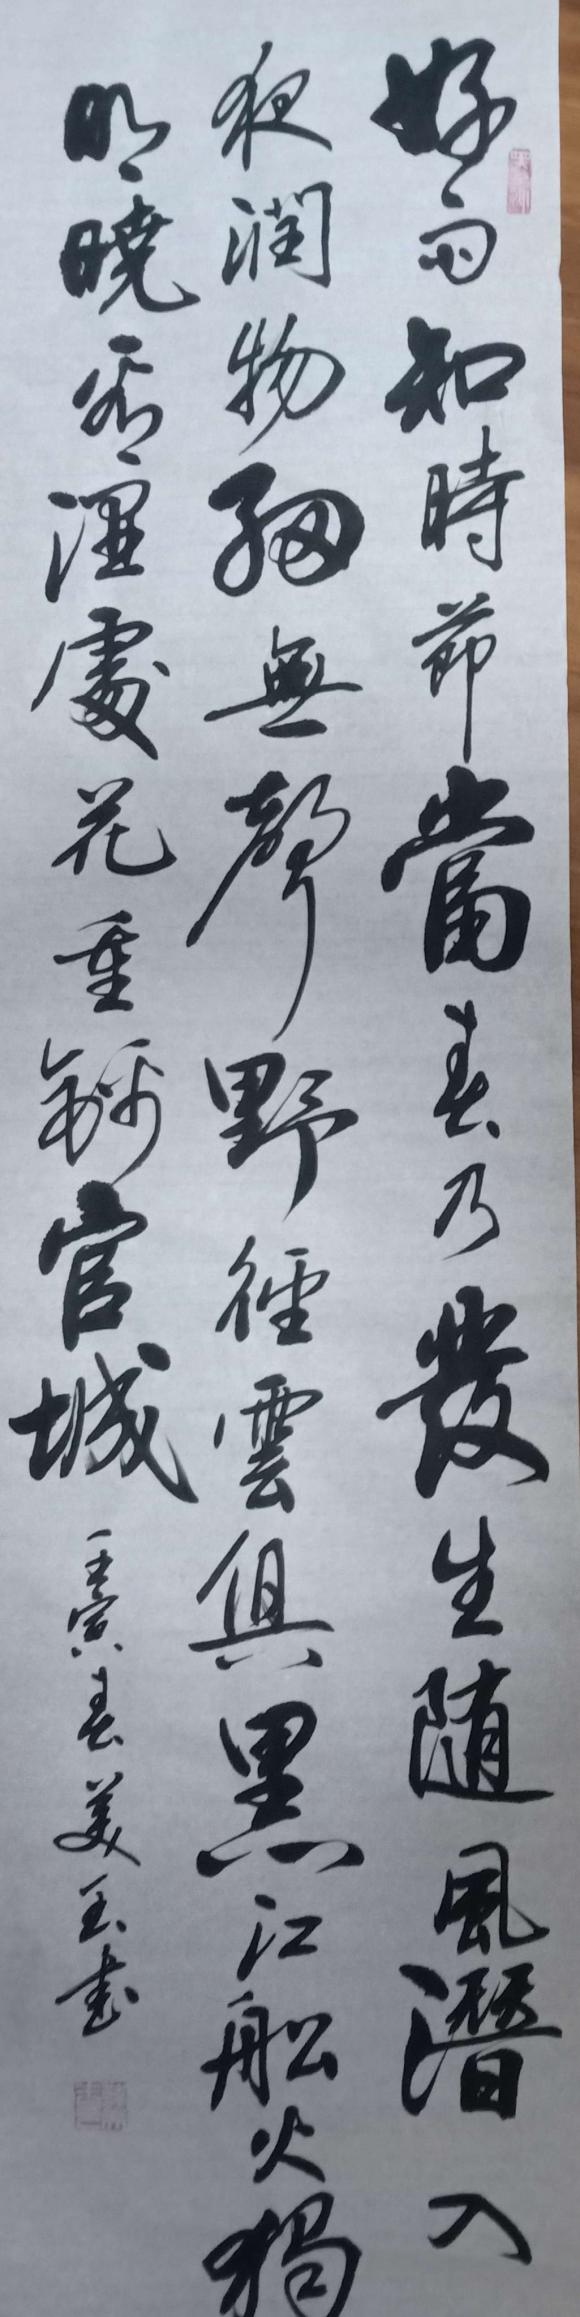 好雨知時節當春乃發生随風潛入
夜潤物細無聲野徑雲俱黑江船火獨
明曉看濕處花重錦官城
壬寅春美玉書